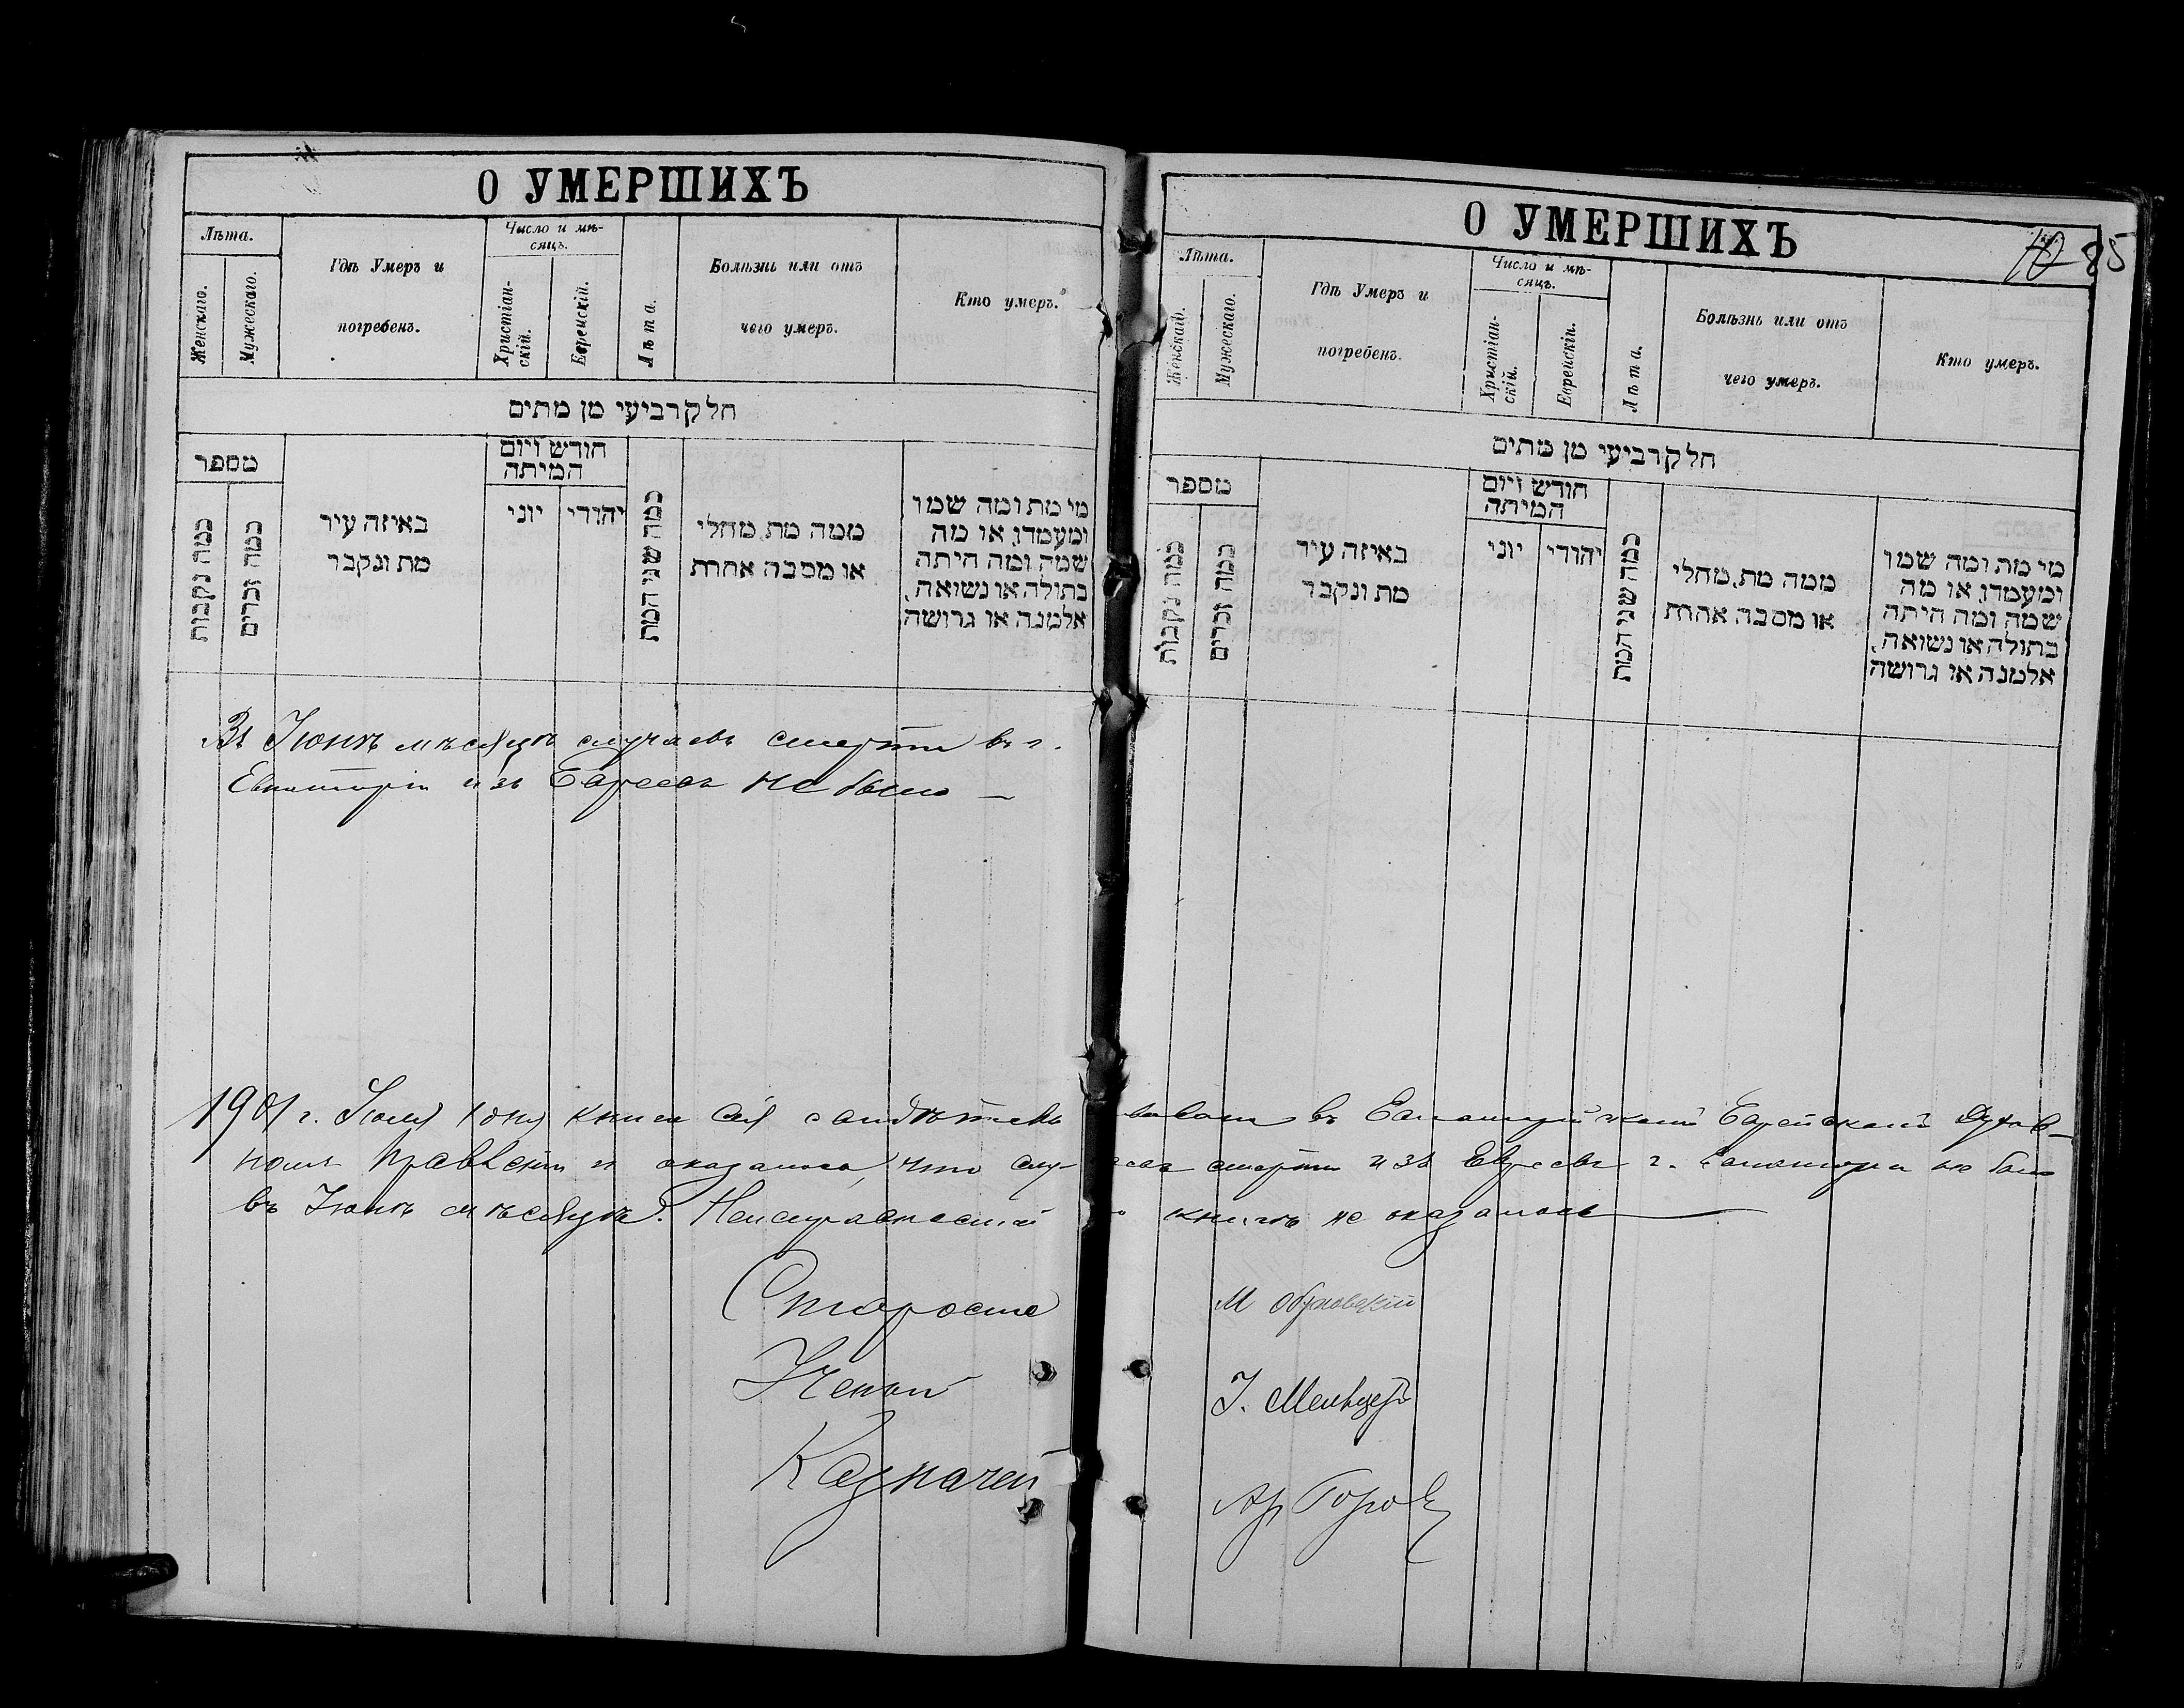 О УМЕРШИХЪ
Лѣта.
Женскаго.
Мужескаго.
Гдѣ Умеръ и
погребенъ.
Число и мѣ-
сяцъ.
Христіан-
скій.
Еврейскій.
Лѣта.
Болѣзнь или отъ
чего умеръ.
Кто умеръ.
חלק רביעי מן מתים
מספר
כמה נקבות
כמה זכרים
באיזה עיר
מת ונקבר
חודש ויום
המיתה
יוני
יהודי
כמה שני המת
ממה מת, מחלי
או מסבה אחרת
מי מת ומה שמו
ומעמדו, או מה
שמה ומה היתה
בתולה או נשואה,
אלמנה או גרושה
Въ Іюнѣ мѣсяцѣ случаевъ смерти въ г.
Евпаторіи изъ Евреевъ не было —
О УМЕРШИХЪ
10 85
Лѣта.
Женскаго.
Мужескаго.
Гдѣ Умеръ и
погребенъ.
Число и мѣ-
сяцъ.
Христіан-
скій.
Еврейскій.
Лѣта.
Болѣзнь или отъ
чего умеръ.
Кто умеръ.
חלק רביעי מן מתים
מספר
כמה נקבות
כמה זכרים
באיזה עיר
מת ונקבר
חודש ויום
המיתה
יוני
יהודי
כמה שני המת
ממה מת, מחלי
או מסבה אחרת
מי מת ומה שמו
ומעמדו, או מה
שמה ומה היתה
בתולה או נשואה,
אלמנה או גרושה
1901 г. Іюля дня книга сія свидѣтель ствована въ Евпаторійскомъ Еврейскомъ Духов-
номъ Правленіи и оказалось, что слу- чаевъ смерти изъ Евреевъ г. Евпаторіи не было
въ Іюнѣ мѣсяцѣ. Неисправностей книгѣ не оказалось —
Староста М
Ученый І. Мельцеръ
Казначей